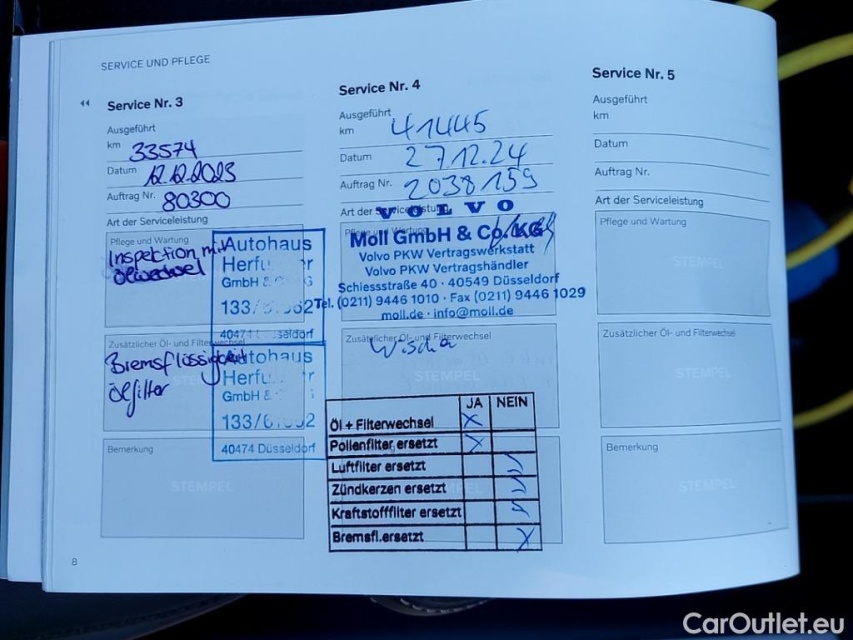 SERVICE UND PFLEGE
Service Nr. 3
Ausgeführt
km 33574
Datum 12.12.2023
Auftrag Nr. 80300
Art der Serviceleistung
Pflege und Wartung
Inspektion mit
Ölwechsel
Autohaus
GmbH &
40474
Zusätzlicher Öl- und Filterwechsel
Bremsflüssigkeit
Ölfilter
Autohaus
GmbH &
40474 Düsseldorf
Bemerkung
STEMPEL
Service Nr. 4
Ausgeführt
km 41445
Datum 27.12.24
Auftrag Nr. 2038159
Art der Serviceleistung
VOLVO
Moll GmbH & Co. KG
Volvo PKW Vertragswerkstatt
Volvo PKW Vertragshändler
Schiessstraße 40 · 40549 Düsseldorf
Tel. (0211) 9446 1010 · Fax (0211) 9446 1029
moll.de · info@moll.de
Zusätzlicher Öl- und Filterwechsel
STEMPEL
JA NEIN
Öl + Filterwechsel
Pollenfilter ersetzt
Luftfilter ersetzt
Zündkerzen ersetzt
Kraftstofffilter ersetzt
Bremsfl.ersetzt
Service Nr. 5
Ausgeführt
km
Datum
Auftrag Nr.
Art der Serviceleistung
Pflege und Wartung
STEMPEL
Zusätzlicher Öl- und Filterwechsel
STEMPEL
Bemerkung
STEMPEL
8
CarOutlet.eu